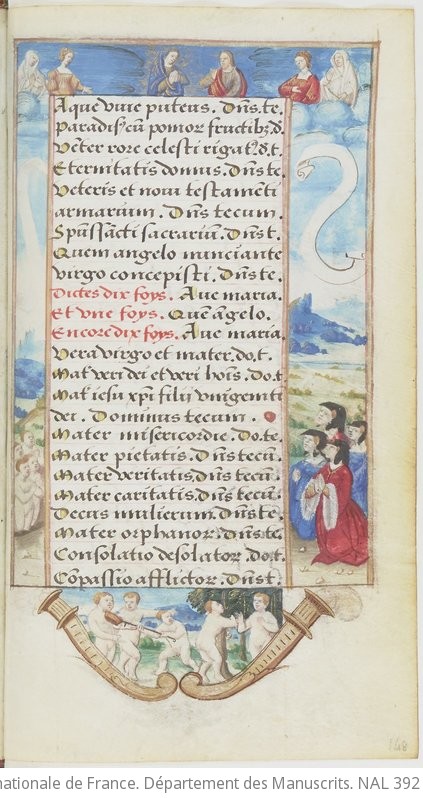 Aque vive puteus. Dñs.te.
Paradisꝰ cū pomor fructibꝫ.d.
Vēter rore celesti rigatꝰ.d.t.
Eternitatis domus. Dñs te.
Veteris et novi testamēti
armarium. Dñs tecum.
Spūssācti sacrariū. Dñs t.
Quem angelo nunciante
virgo concepisti. Dñs te.
Dictes dix foys. Ave maria.
Et vne foys. Quē āgelo.
Encore dix foys. Ave maria.
Vera virgo et mater.do.t.
Matʳ veri dei et veri hoīs. Do.t
Matʳ iesu xp̄i filij vnigeniti
dei. Dominus tecum.
Mater misericordie. Do.te.
Mater pietatis. Dñs tecū.
Mater veritatis. dñs tecū.
Mater caritatis. dñs tecū.
Decus mulierum. Dñs te.
Mater orphanoꝝ. dñs te
Consolatio desolatoꝝ. do.t.
Cōpassio afflictoꝝ. Dñs t.
148
nationale de France. Département des Manuscrits. NAL 392